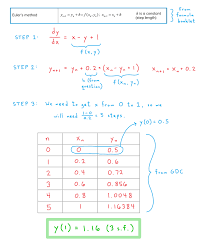 Euler's method
yₙ₊₁ = yₙ + h × f(xₙ, yₙ); xₙ₊₁ = xₙ + h
h is a constant
(step length)
from
formula
booklet
STEP 1: dy/dx = x - y + 1
f(x,y)
STEP 2: yₙ₊₁ = yₙ + 0.2 × (xₙ - yₙ + 1) xₙ₊₁ = xₙ + 0.2
h (from
question)
f(xₙ,yₙ)
STEP 3: We need to get x from 0 to 1, so we
will need 1-0/0.2 = 5 steps.
y(0) = 0.5
n xₙ yₙ
0 0 0.5
1 0.2 0.6
2 0.4 0.72
3 0.6 0.856
4 0.8 1.0048
5 1 1.16384
from GDC
y(1) = 1.16 (3 s.f.)